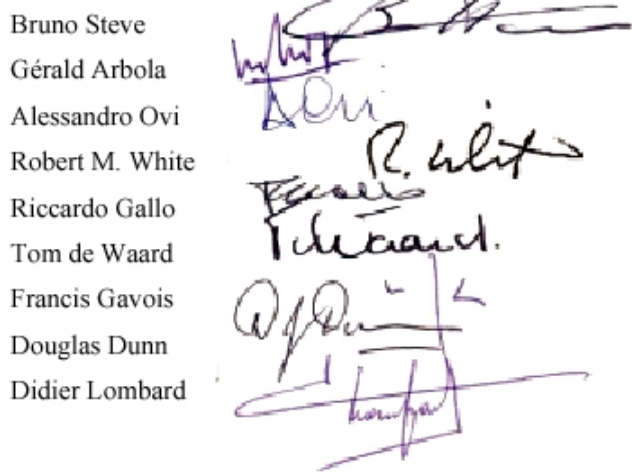 Bruno Steve
Gérald Arbola
Alessandro Ovi
Robert M. White
Riccardo Gallo
Tom de Waard
Francis Gavois
Douglas Dunn
Didier Lombard
A Ovi
R. White
T de Waard.
D J Dunn